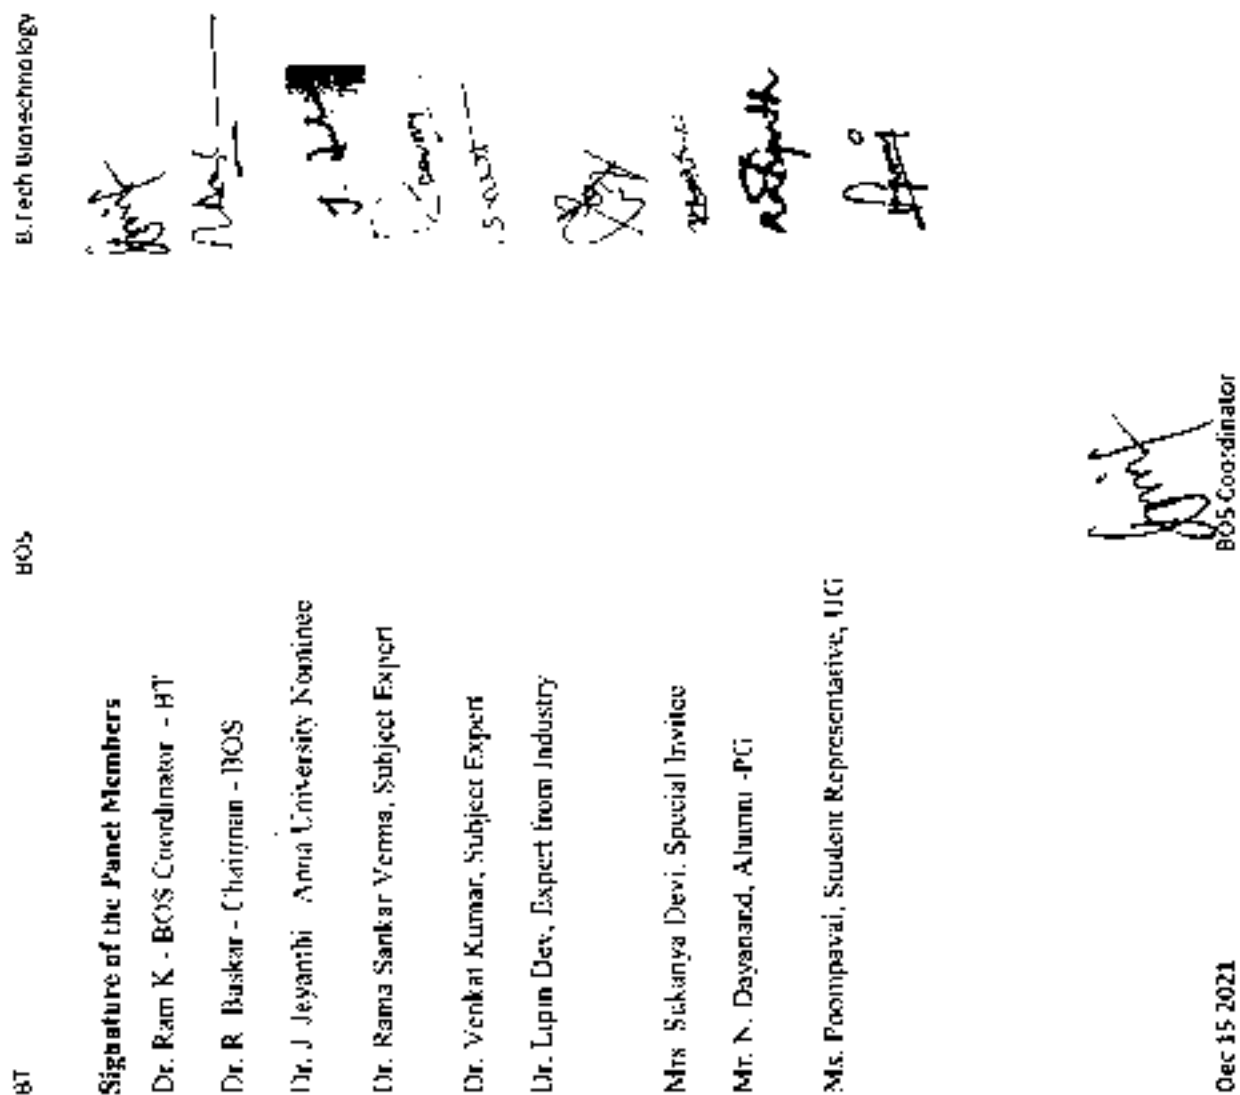 BT BOS B.Tech Biotechnology
Signature of the Panel Members
Dr. Ram K - BOS Coordinator - BT
Dr. R. Baskar - Chairman - BOS
Dr. J Jeyanthi Anna University Nominee
Dr. Rama Sankar Verma, Subject Expert
Dr. Venkat Kumar, Subject Expert
Dr. Lipin Dev, Expert from Industry
Mrs Sukanya Devi, Special Invitee
Mr. N. Dayanand, Alumni -PG
Ms. Poompavai, Student Representative, UG
Dec 15 2021 BOS Coordinator